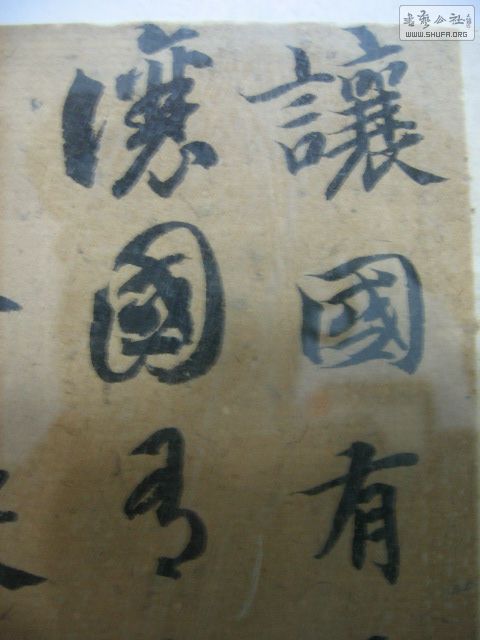 讓國有
讓國有
書藝公社
WWW.SHUFA.ORG